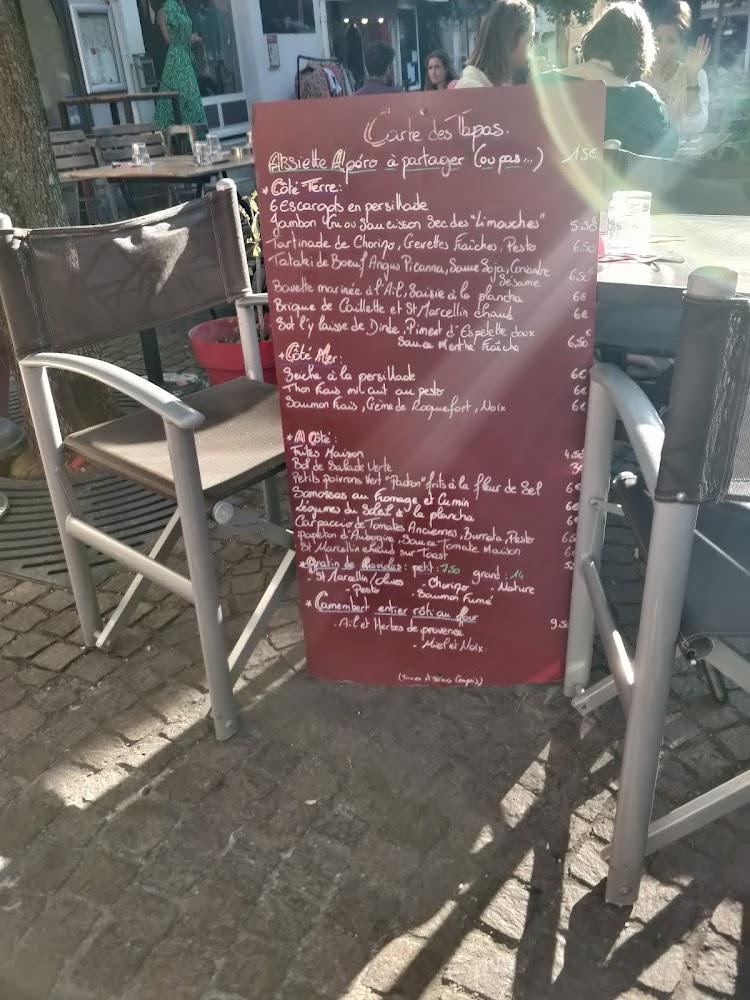 Carte des Tapas.
Assiette Apéro à partager (ou pas...) 15€
* Côté Terre:
6 Escargots en persillade
Jambon Cru ou Saucisson Sec des "Limouches" 5.50€
Tartinade de Chorizo, Crevettes Fraîches, Pesto 6.50
Tataki de Boeuf Angus Picanna, Sauce Soja, Coriandre
Sésame 6.50€
Bavette marinée à l'Ail, Saisie à la plancha 6€
Brique de Caillette et St Marcellin chaud 6€
Sot l'y laisse de Dinde, Piment d'Espelette doux
Sauce Menthe Fraîche 6,50€
* Côté Mer:
Seiche à la persillade 6€
Thon Frais mi cuit au pesto 6€
Saumon Frais, Crème de Roquefort, Noix 6€
* A Côté:
Frites Maison 4.50€
Bol de Salade Verte 3€
Petits poivrons Vert "Padron" frits à la fleur de Sel 6€
Samossas au Fromage et Cumin 6€
Légumes du Soleil à la plancha 6€
Carpaccio de Tomates Anciennes, Burrata, Pesto
Papeton d'Aubergine, Sauce Tomate Maison
St Marcellin chaud sur Toast
* Gratin de Ravioles: petit: 7.50 grand: 14
- St Marcellin/olives - Chorizo - Nature
- Pesto - Saumon Fumé
* Camembert entier rôti au four
- Ail et Herbes de provence 9.50
- Miel et Noix.